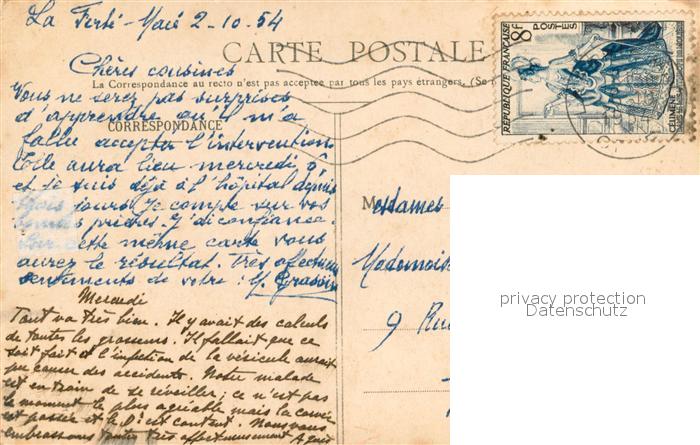 La Ferté-Macé 2-10-54
CARTE POSTALE
Chères cousines
La Correspondance au recto n'est pas acceptée par tous les pays étrangers. (Se
Vous ne serez pas surprises
d'apprendre qu'il m'a
fallu accepter l'intervention
CORRESPONDANCE
Elle aura lieu mercredi 6
et je suis déjà à l'hôpital depuis
trois jours. Je compte sur vos
bonnes prières. J'ai confiance.
Sur cette même carte vous
aurez le résultat. Très affectueux
sentiments de votre : Y.
Mercredi
Tout va très bien. Il y avait des calculs
de toutes les grosseurs. Il fallait que ce
soit fait et l'infection de la vésicule aurait
pu causer des accidents. Notre malade
est en train de se réveiller; ce n'est pas
le moment le plus agréable mais la corvée
est passée et le Dr est content. Nous vous
embrassons toutes très affectueusement
RÉPUBLIQUE FRANÇAISE
8F
POSTES
CÉLIMÈNE
Mesdames
Mademoise
9 Rue
privacy protection
Datenschutz